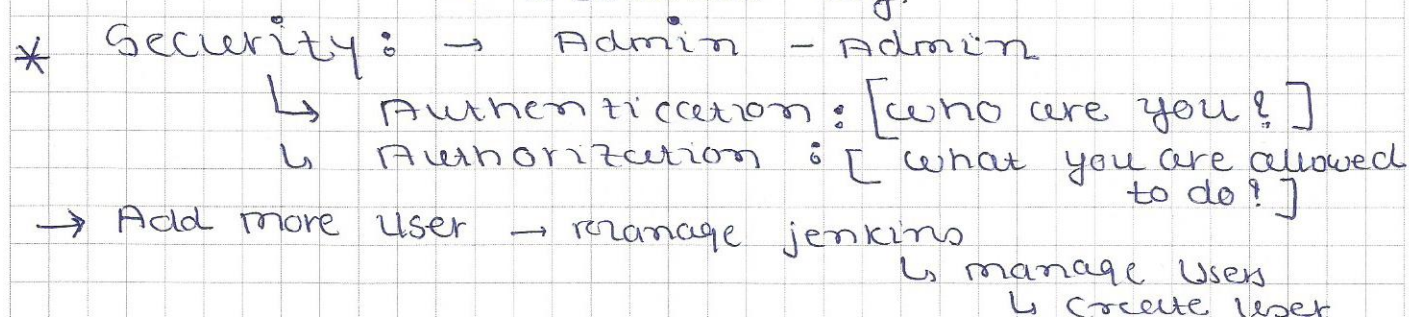 * Security: → Admin - Admin
↳ Authentication: [who are you?]
↳ Authorization: [what you are allowed
to do?]
→ Add more user → manage jenkins
↳ manage users
↳ create user